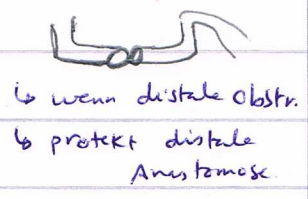 ↳ wenn distale Obstr.
↳ protekt distale
Anastomose.